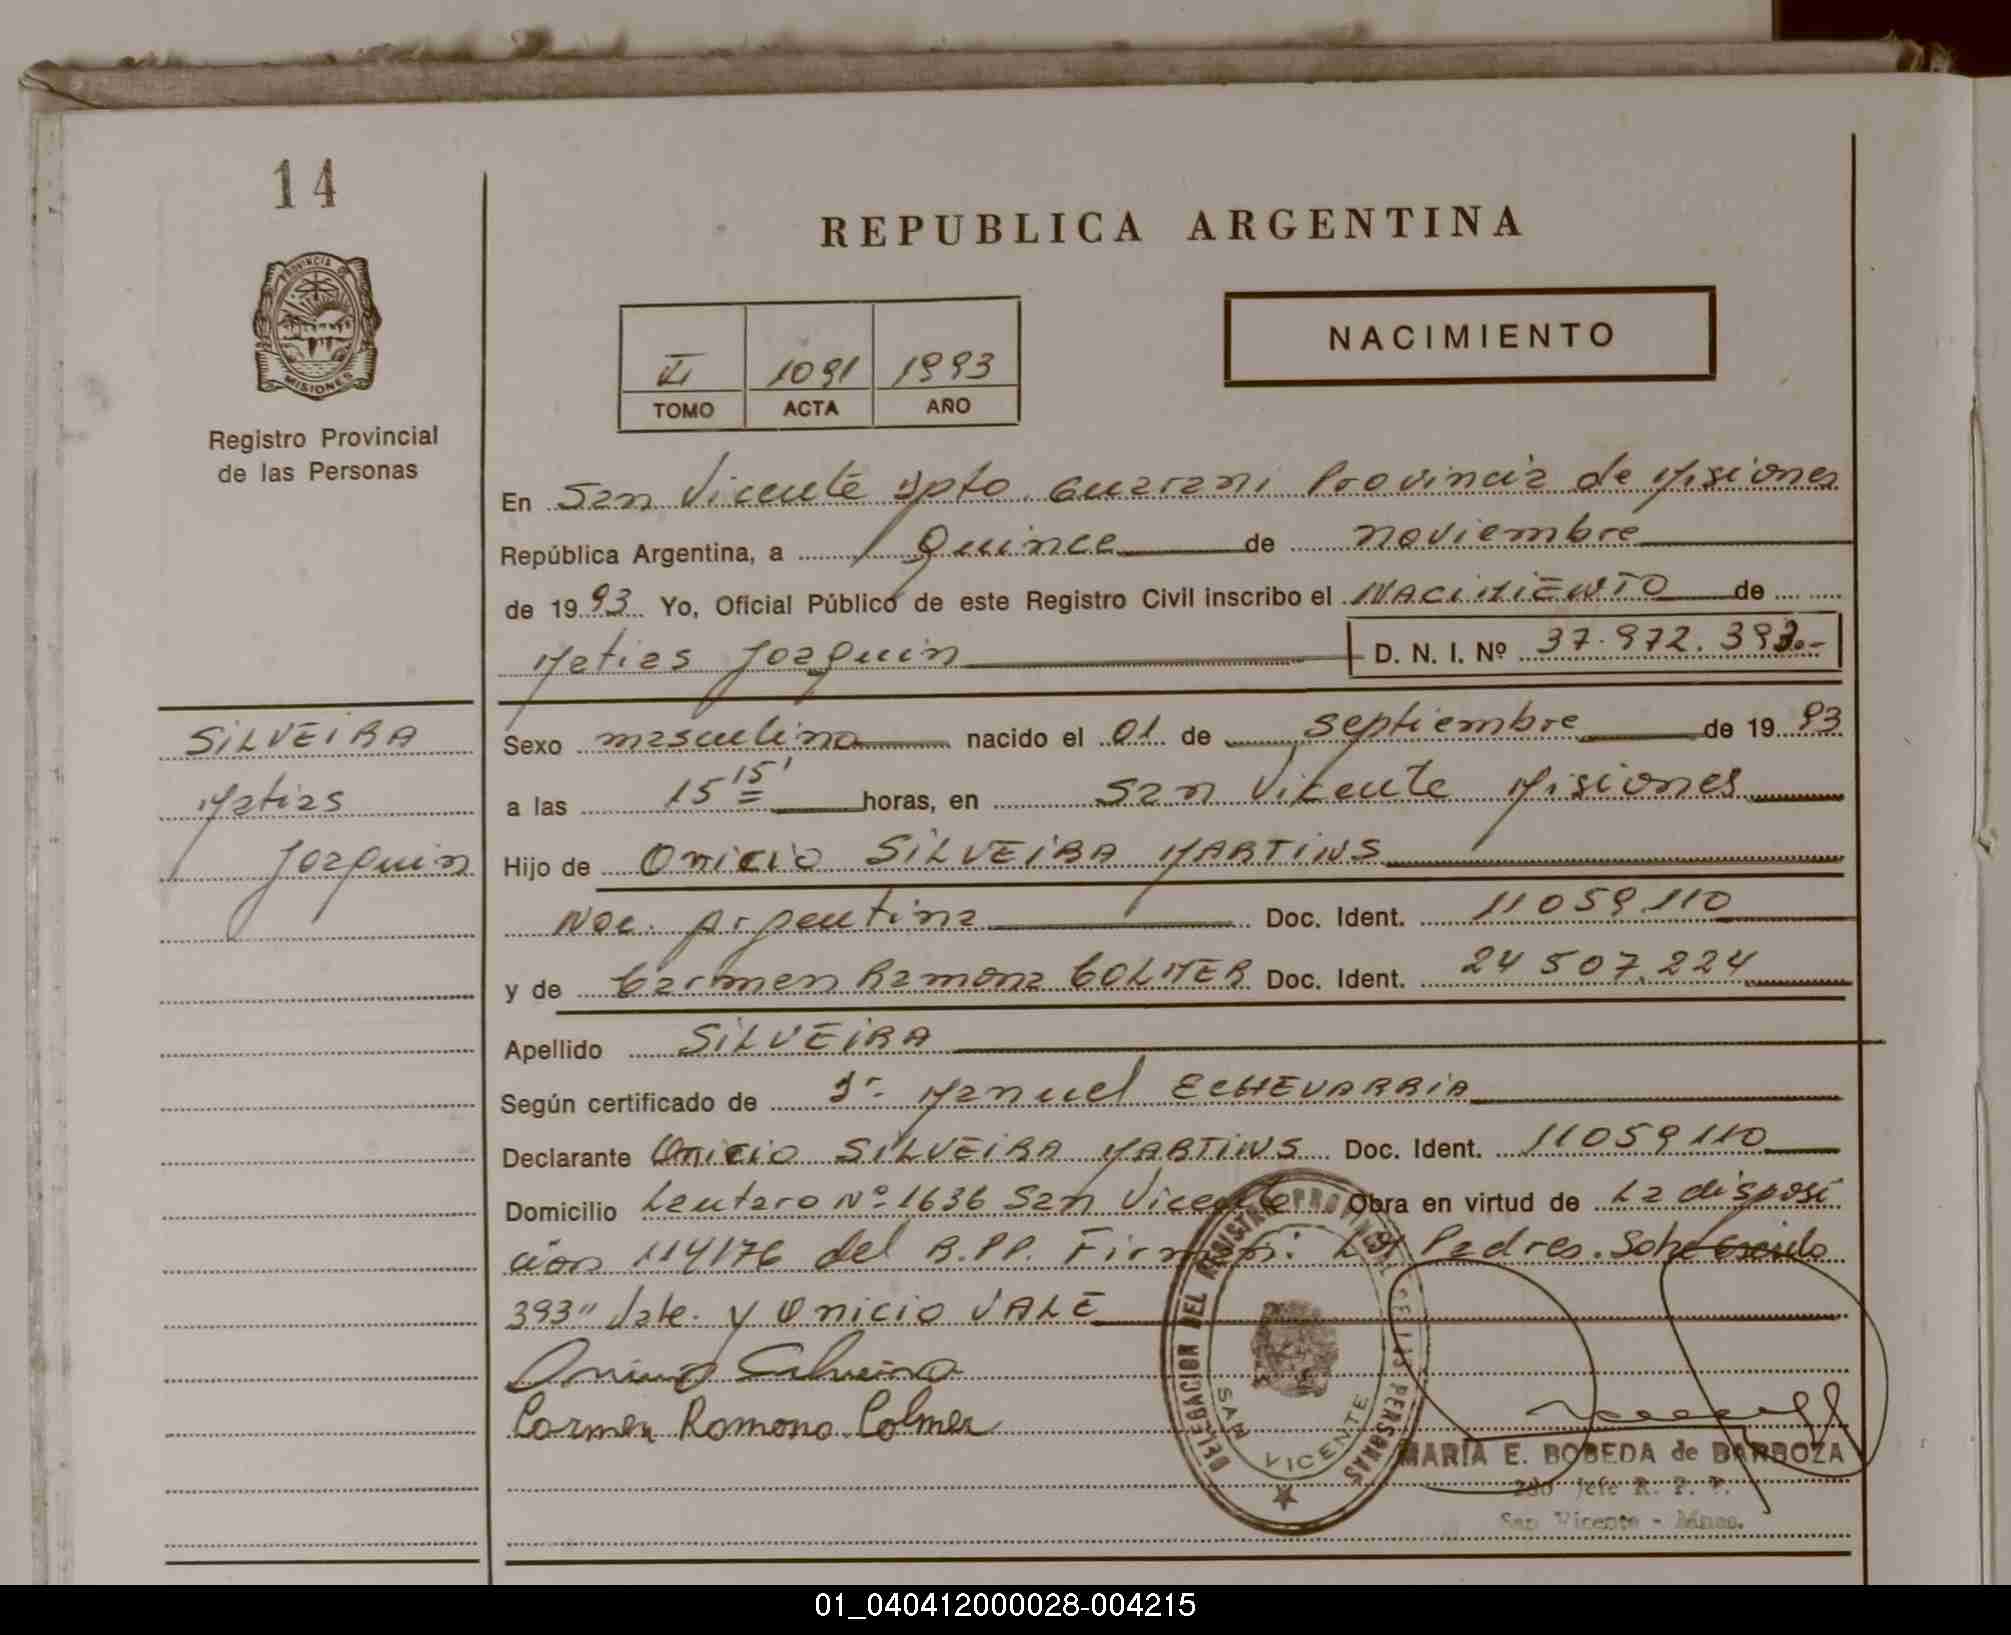 14
REPUBLICA ARGENTINA
PROVINCIA DE
MISIONES
Registro Provincial
de las Personas
NACIMIENTO
VI 1091 1993
TOMO ACTA AÑO
En San Vicente Dpto. Guarani Provincia de Misiones
República Argentina, a Quince de noviembre
de 1993 Yo, Oficial Público de este Registro Civil inscribo el NACIMIENTO de
Matias Joaquin D. N. I. Nº 37.972.393.-
SILVEIRA
Matias
Joaquin
Sexo masculino nacido el 01 de septiembre de 1993
a las 15 15' horas, en San Vicente Misiones
Hijo de Onicio SILVEIRA MARTINS
Nac. Argentina Doc. Ident. 11059110
y de Carmen Ramona COLMER Doc. Ident. 24 507.224
Apellido SILVEIRA
Según certificado de Dr. Manuel ECHEVARRIA
Declarante Onicio SILVEIRA MARTINS Doc. Ident. 11059110
Domicilio Lautaro Nº 1636 San Vicente Obra en virtud de La disposi
cion 114/76 del R.P.P. Firman: Los Padres. Sobre
393" Vale. y Onicio VALE
Onicio Silveira
Carmen Ramona Colmer
DELEGACION DEL REGISTRO PROVINCIAL DE LAS PERSONAS
SAN VICENTE
MARIA E. BOBEDA de BARBOZA
2do Jefe R. P. P.
San Vicente - Mnes.
01_040412000028-004215